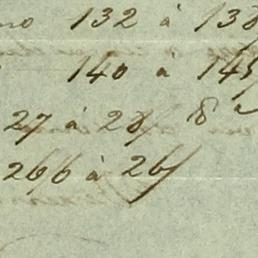 no 132 à 138
140 à 145
27 à 28
266 à 267